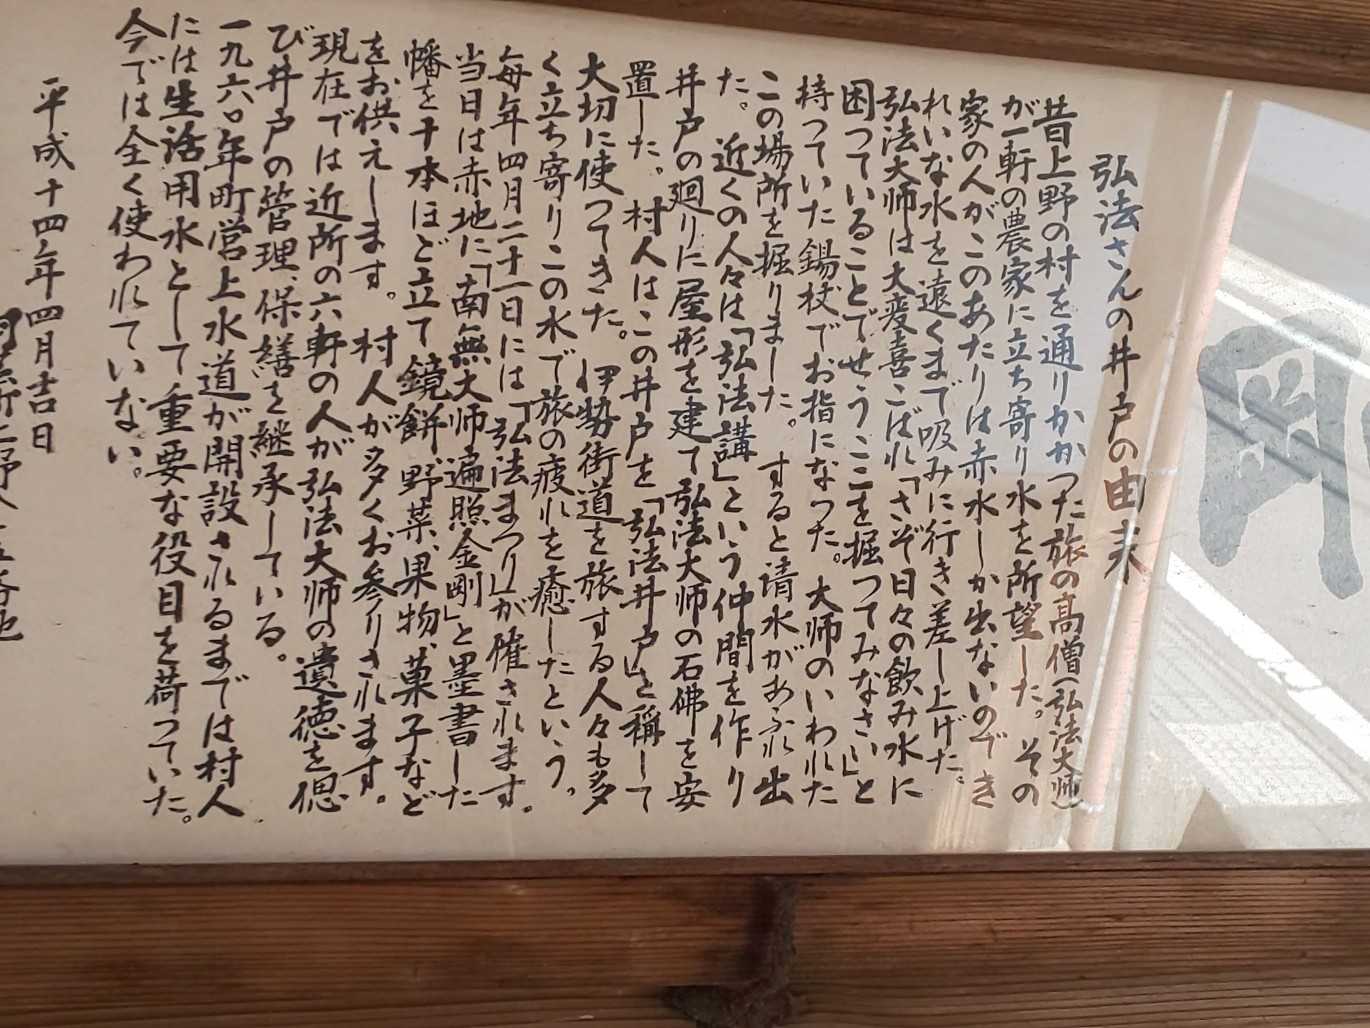 弘法さんの井戸の由来
昔上野の村を通りかかった旅の高僧(弘法大師)
が一軒の農家に立ち寄り水を所望した。その
家の人がこのあたりは赤水しか出ないのでき
れいな水を遠くまで吸みに行き差し上げた。
弘法大師は大変喜こばれ「さぞ日々の飲み水に
困っていることでせうここを掘ってみなさい」と
持っていた錫杖でお指になった。大師のいわれた
この場所を掘りました。すると清水があふれ出
た。近くの人々は「弘法講」という仲間を作り
井戸の廻りに屋形を建て弘法大師の石佛を安
置した。村人はこの井戸を「弘法井戸」と稱して
大切に使ってきた。伊勢街道を旅する人々も多
く立ち寄りこの水で旅の疲れを癒したという。
毎年四月二十一日には「弘法まつり」が催されます。
当日は赤地に「南無大师遍照金剛」と墨書した
幡を千本ほど立て鏡餅、野菜、果物、菓子など
をお供えします。村人が多くお参りされます。
現在では近所の六軒の人が弘法大師の遺徳を偲
び井戸の管理、保繕を継承している。
一九六〇年町営上水道が開設されるまでは村人
には生活用水として重要な役目を荷っていた。
今では全く使われていない。
平成十四年四月吉日